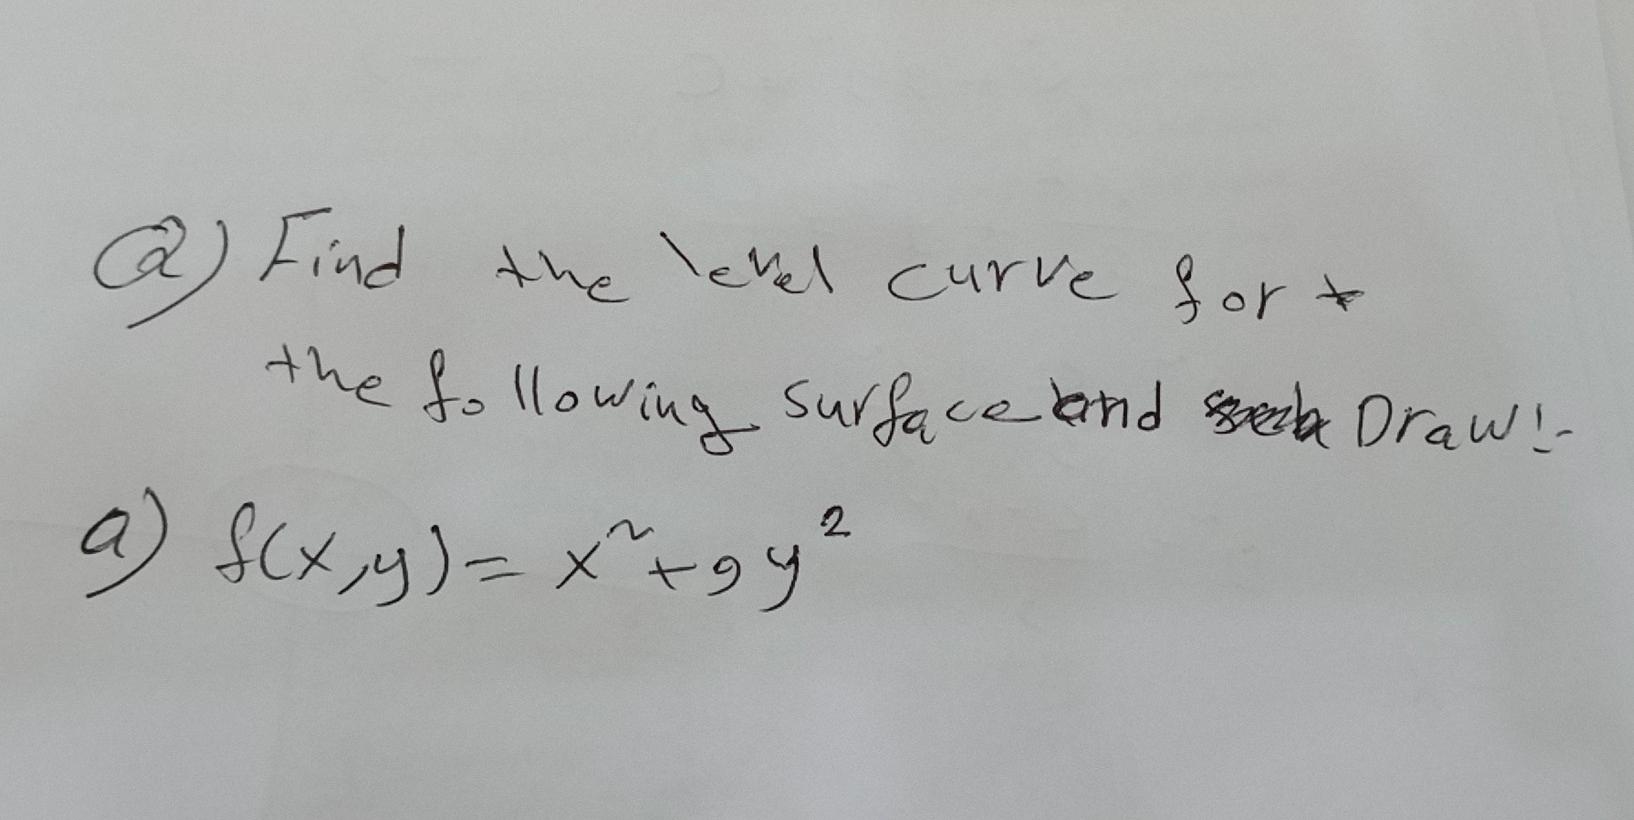 Q) Find the level curve for
the following surface and Draw:-
a) f(x,y) = x²+9y²